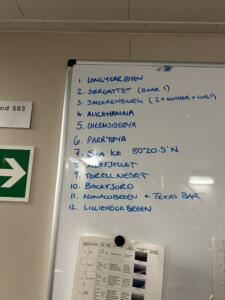 nd 503
1. LONGYEARBYEN
2. SØRGATTET (BEAR 1)
3. SMEERENBURG (2 x MOTHER + CUB)
4. ALICEHAMNA
5. CHERMSIDEØYA
6. PARRYØYA
7. SEA ICE 80°20.5'N
8. ALKEFJELLET
9. TORELLNESET
10. BOCKFJORD
11. MONACOBREEN + TEXAS BAR
12. LILLIEHÖÖKBREEN